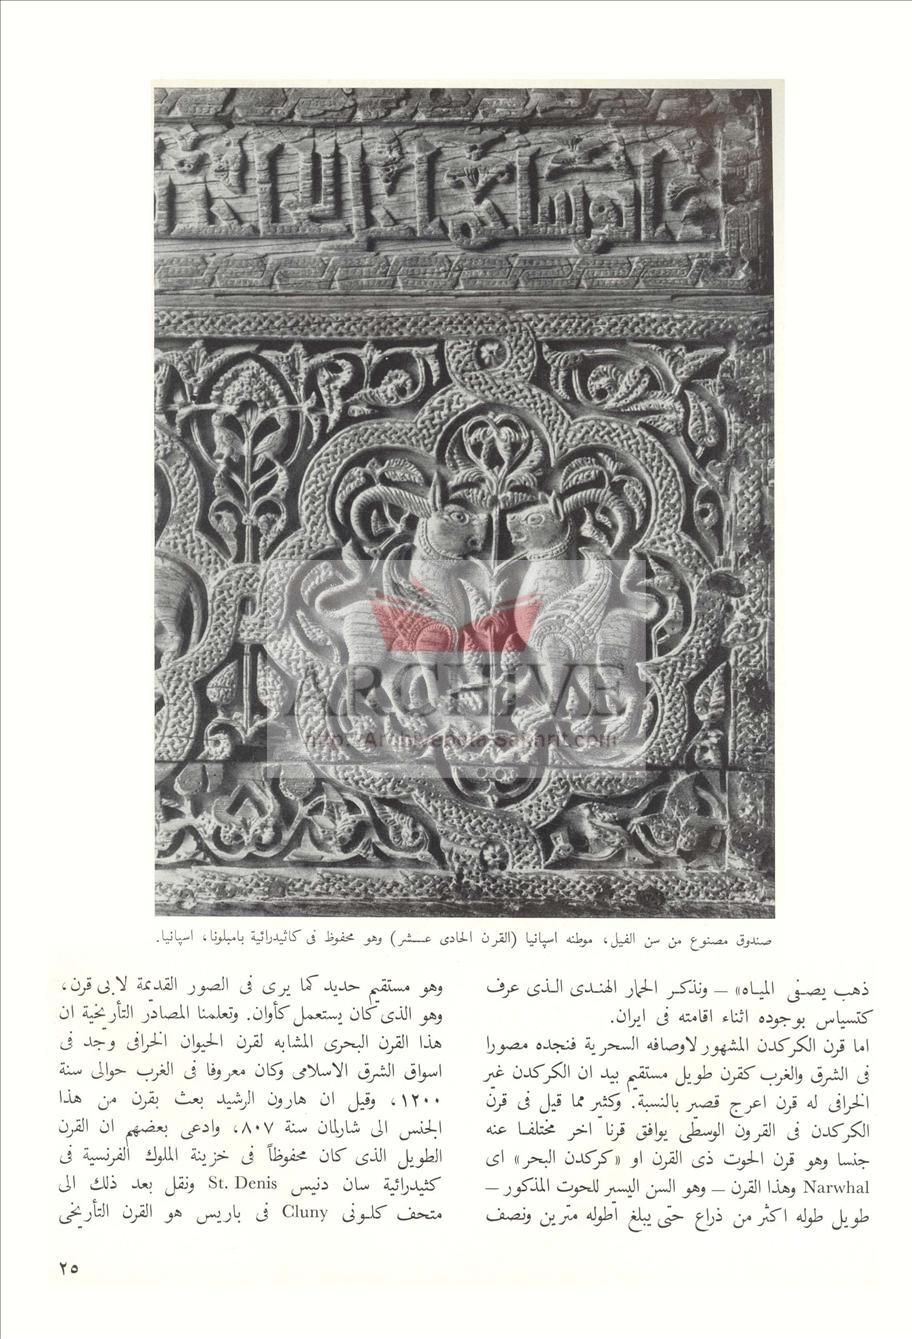 ARCHIVE
http://Archivebeta.Sakhrit.com
صندوق مصنوع من سن الفيل، موطنه اسپانيا (القرن الحادى عـــشر) وهو محفوظ فى كاثيدرائية بامبلونا، اسپانيا.
ذهب يصـفى الميـاه» ــ ونذكـر الحمار الهنـدى الـذى عرف
كتسياس بوجوده اثناء اقامته فى ايران.
اما قرن الكركدن المشهور لاوصافه السحرية فنجده مصورا
فى الشرق والغرب كقرن طويل مستقيم بيد ان الكركدن غير
الخرافى له قرن اعرج قصير بالنسبة. وكثير مما قيل فى قرن
الكركدن فى القرون الوسطى يوافق قرنا اخر مختلفـا عنه
جنسا وهو قرن الحوت ذى القرن او «كركدن البحر» اى
Narwhal وهذا القرن ــ وهو السن اليسير للحوت المذكور ــ
طويل طوله اكثر من ذراع حتى يبلغ اطوله مترين ونصف
وهو مستقيم حديد كما يرى فى الصور القديمة لابى قرن،
وهو الذى كان يستعمل كأوان. وتعلمنا المصادر التأريخية ان
هذا القرن البحرى المشابه لقرن الحيوان الخرافى وجد فى
اسواق الشرق الاسلامى وكان معروفا فى الغرب حوالى سنة
١٢٠٠، وقيل ان هارون الرشيد بعث بقرن من هذا
الجنس الى شارلمان سنة ٨٠٧، وادعى بعضهم ان القرن
الطويل الذى كان محفوظاً فى خزينة الملوك الفرنسية فى
كثيدرائية سان دنيس St. Denis ونقل بعد ذلك الى
متحف كلـونى Cluny فى باريس هو القرن التأريخى
٢٥